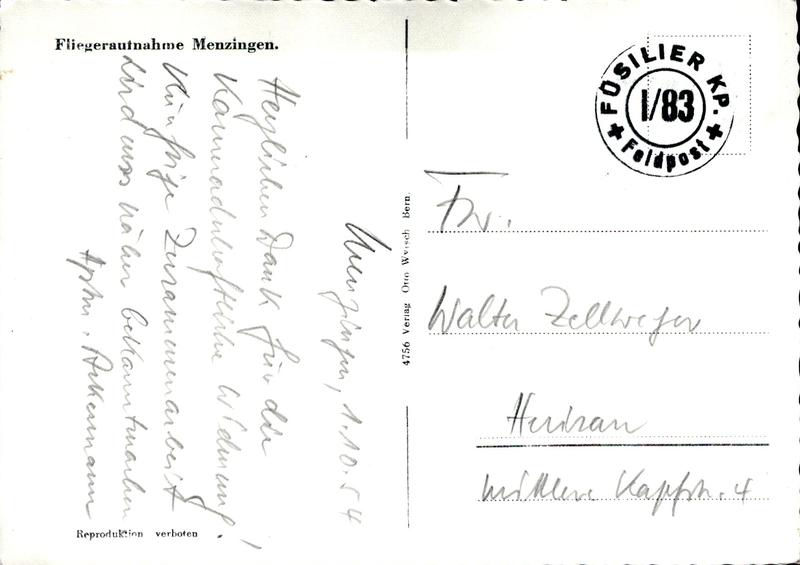 Fliegeraufnahme Menzingen.
Menzingen, 1.10.54
Herzlichen Dank für die
Kameradschaftliche Widmung!
Künftige Zusammenarbeit
wird uns näher bekanntmachen
Hptm. Ackermann
Reproduktion verboten
4756 Verlag Otto Wyrsch Bern.
FÜSILIER KP.
I/83
Feldpost
Walter Zellweger
Herisau
mittlere Kapfstr. 4